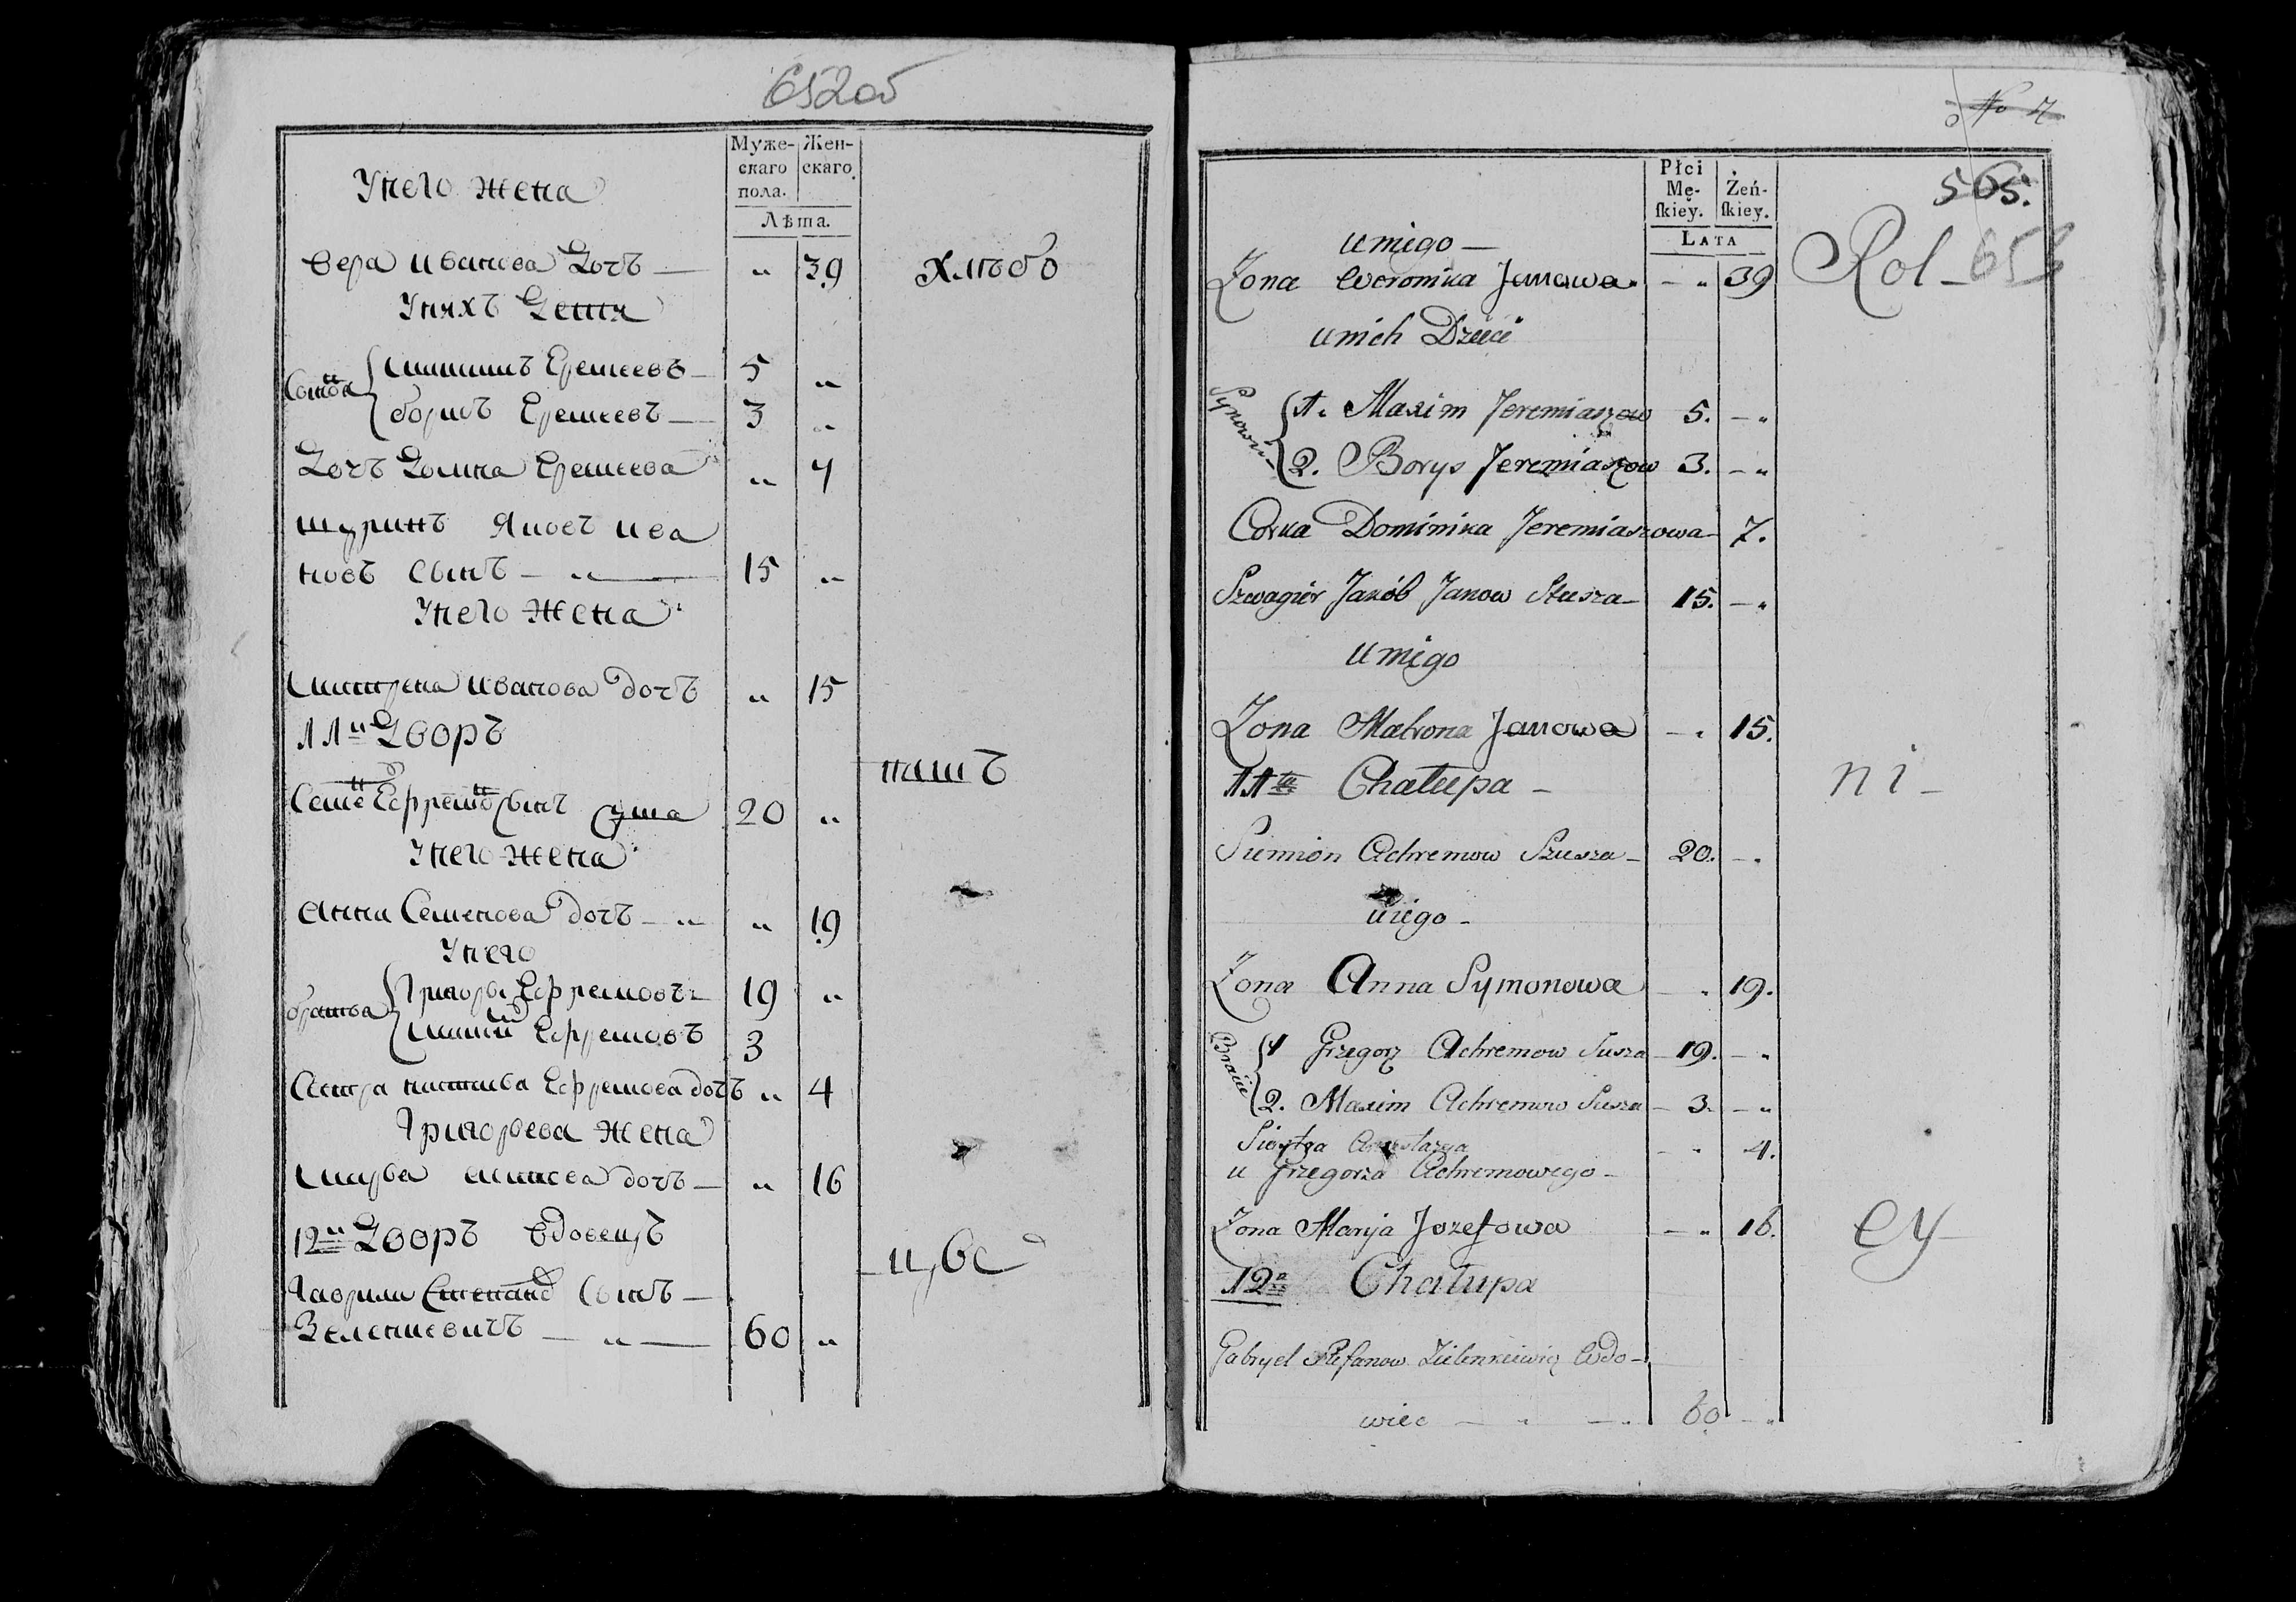 652об
Муже-
скаго
пола.
Жен-
скаго.
Лѣта.
У него жена
Вера Иванова Дочь — „ 39
Хлѣбо
У них Дети
Сынов.
Максимъ Еремеевъ — 5 „
Борисъ Еремеевъ — 3 „
Дочь Домна Еремеева „ 7
Шуринъ Яковъ Ива
новъ Сынъ — „ — 15 „
У него Жена
Матрена Иванова дочь „ 15
11й Дворъ
пашъ
Семе Ефремо Сынъ Суша 20 „
У него жена
Анна Семенова дочь — „ „ 19
У него
братья
Григорь Ефремовъ 19 „
Максим Ефремовъ 3
Сестра Настасья Ефремова дочь „ 4
Григорьева жена
Марья дочь — „ 16
12й Дворъ вдовецъ
цы
Гаврила Степано Сынъ —
Зеленкевичъ — „ — 60 „
No 7
565.
653
Płci
Mę-
ſkiey.
Żeń-
ſkiey.
LATA
u niego —
Rol —
Żona Weronika Janowa — „ 39
u nich Dzieci
Synowie
1. Maxim Jeremiaszow 5. — „
2. Borys Jeremiaszow 3. — „
Corka Dominika Jeremiaszowa — 7.
Szwagier Jakób Janow Susza — 15. — „
u niego
Żona Matrona Janowa — „ 15.
11ta Chałupa —
ni —
Siemion Achremow Szusza — 20. — „
u niego —
Żona Anna Symonowa — „ 19.
Bracie
1 Grzegorz Achremow Susza — 19. — „
2. Maxim Achremow Susza — 3. — „
Siostra Anastazya — „ 4.
u Grzegorza Achremowego —
Żona Marya Jozefowa — „ 16.
cy —
12a Chałupa
Gabryel Stefanow Zielenkiewicz Wdo-
wiec — „ — „ 60 — „